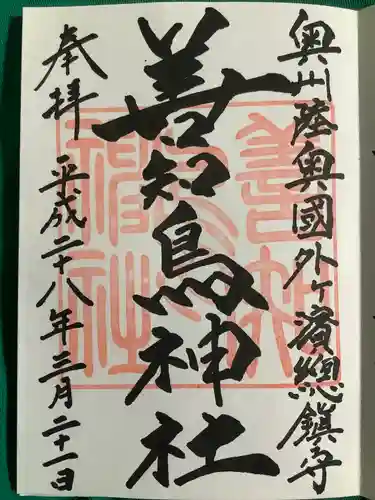 奥州陸奥國外ヶ濱總鎮守
善知鳥神社
奉拝
平成二十八年三月二十一日